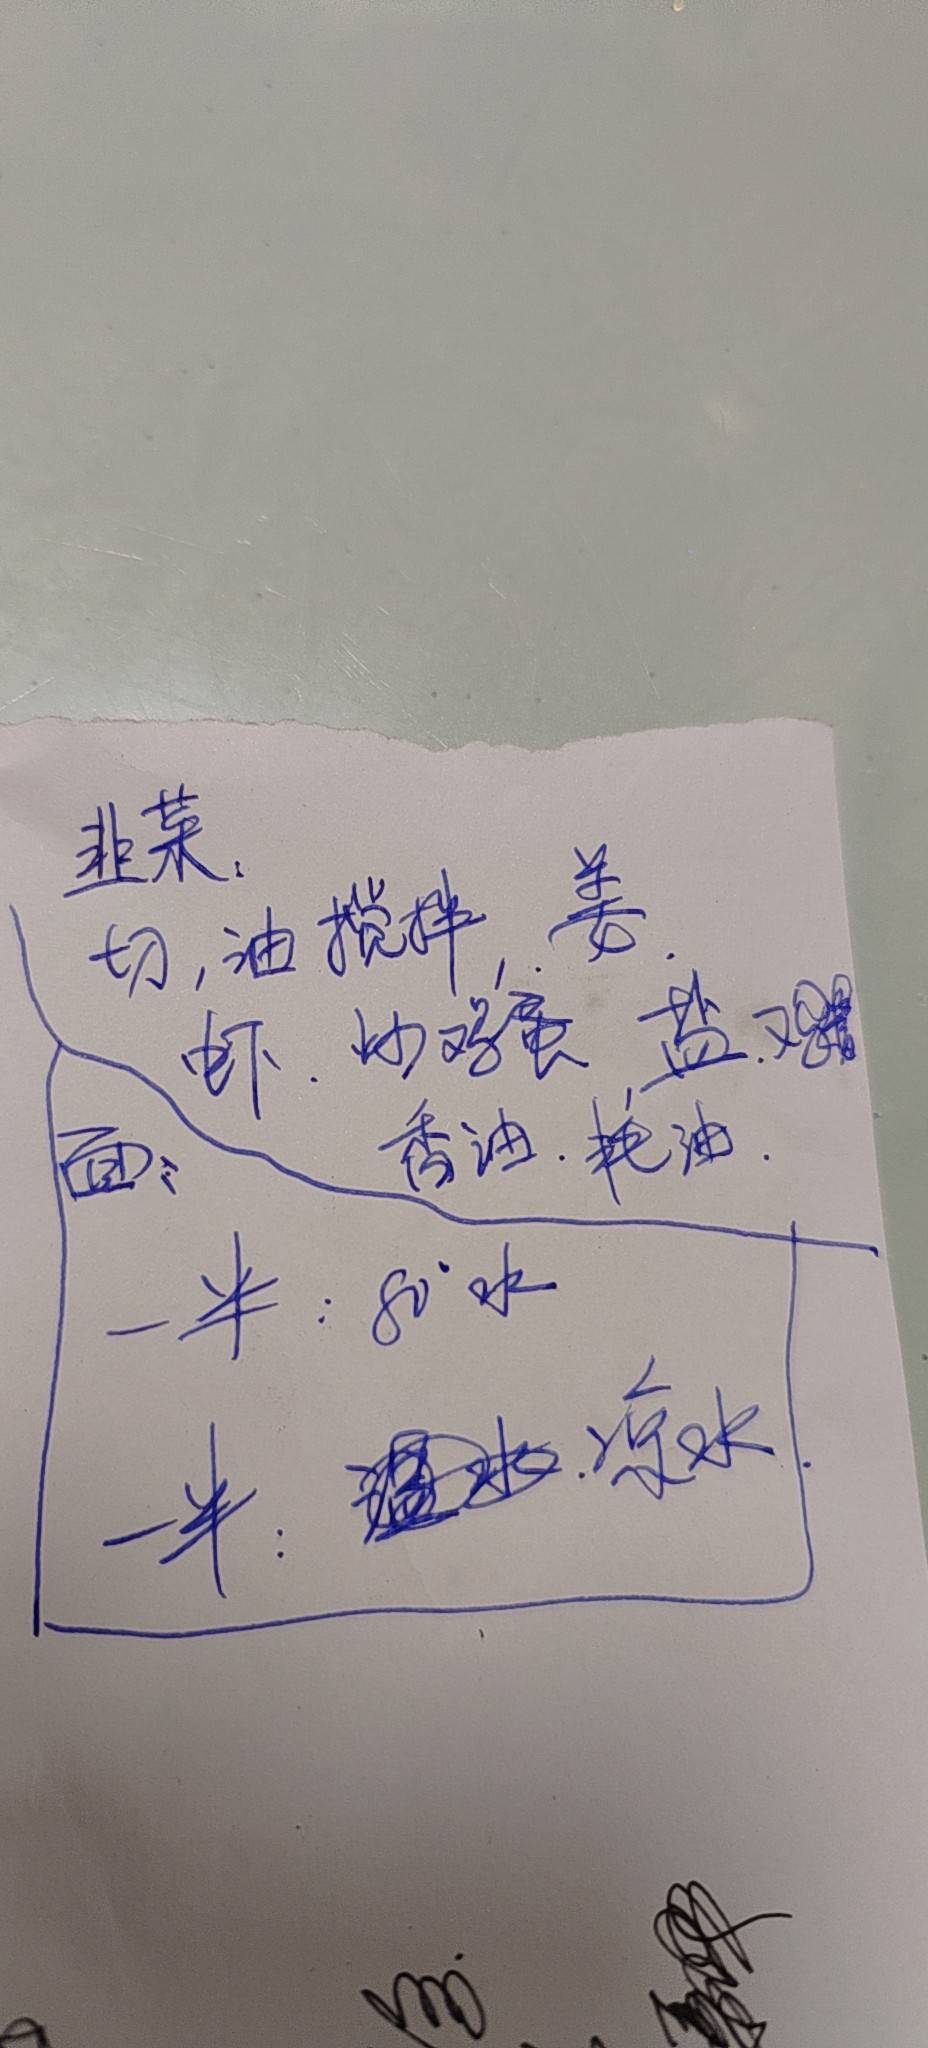 韭菜:
切,油搅拌,姜.
虾.炒鸡蛋,盐.鸡精
香油.耗油.
面:
一半:80°水
一半:凉水.